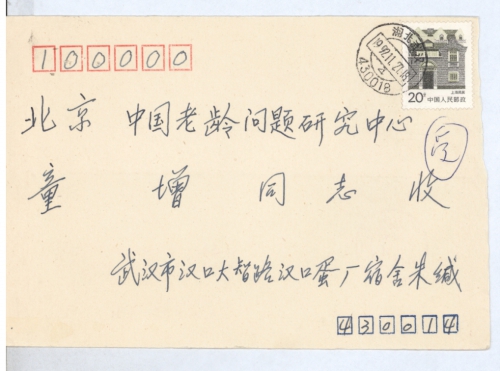 100000
北京 中国老龄问题研究中心
童增同志收
武汉市汉口大智路汉口蛋厂宿舍朱缄
430014
湖北
1992.11.21
430018
20分 中国人民邮政